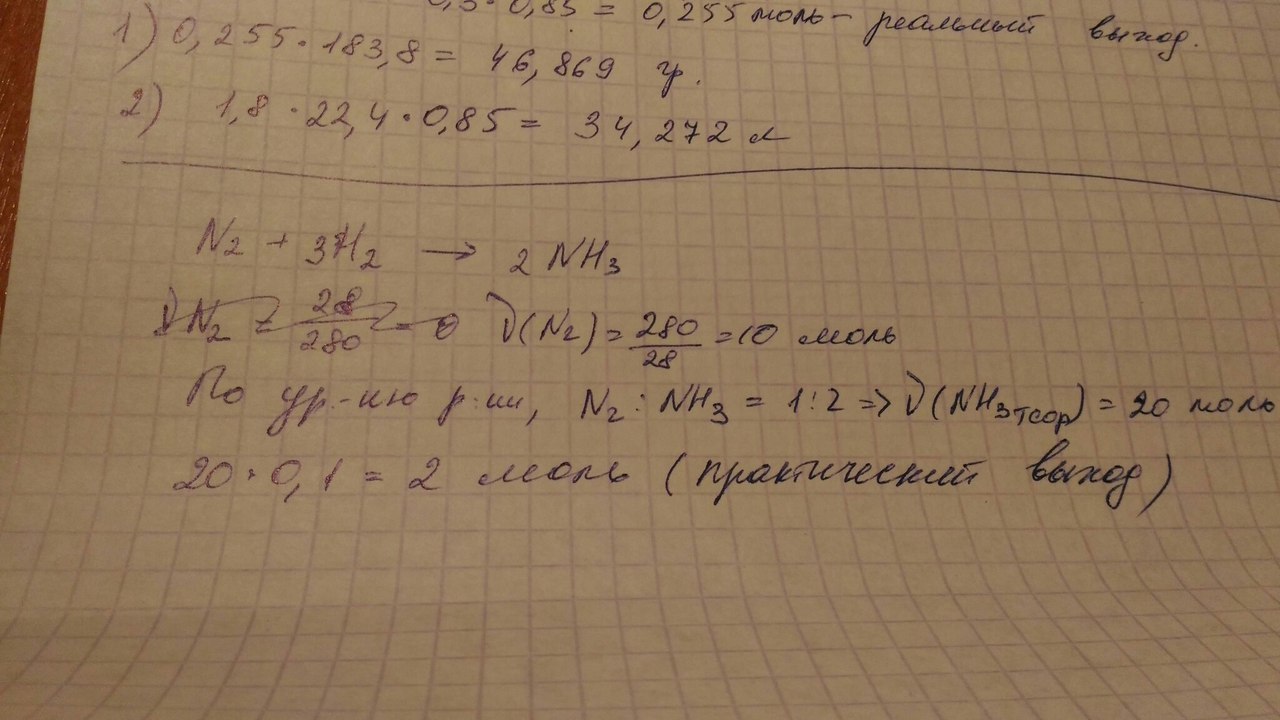 0,3·0,85 = 0,255 моль – реальный выход.
1) 0,255·183,8 = 46,869 гр.
2) 1,8·22,4·0,85 = 34,272 л
N₂ + 3H₂ → 2 NH₃
ν N₂ = 28/280 = 0 ν(N₂) = 280/28 = 10 моль
По ур-ию р-ии, N₂ : NH₃ = 1:2 => ν(NH₃ теор) = 20 моль
20·0,1 = 2 моль (практический выход)